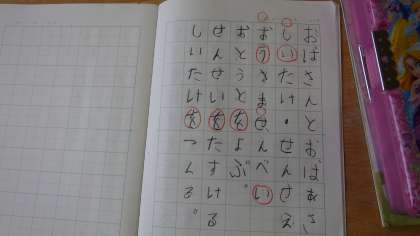 おばさんとおばあさ
しいたけ・せんせえ
おうさま・せんべい
おとうとをよぶ。
せんせいをたすける
しいたけをつくる。